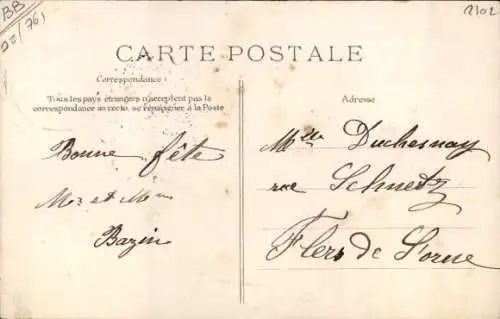 BB
22/76)
2102
CARTE POSTALE
Correspondance :
Tous les pays étrangers n'acceptent pas la
correspondance au recto. se renseigner à la Poste
Bonne fête
Mr et Mme
Bazin
Adresse
Mlle Duchesnay
rue Schnetz
Flers de l'orne